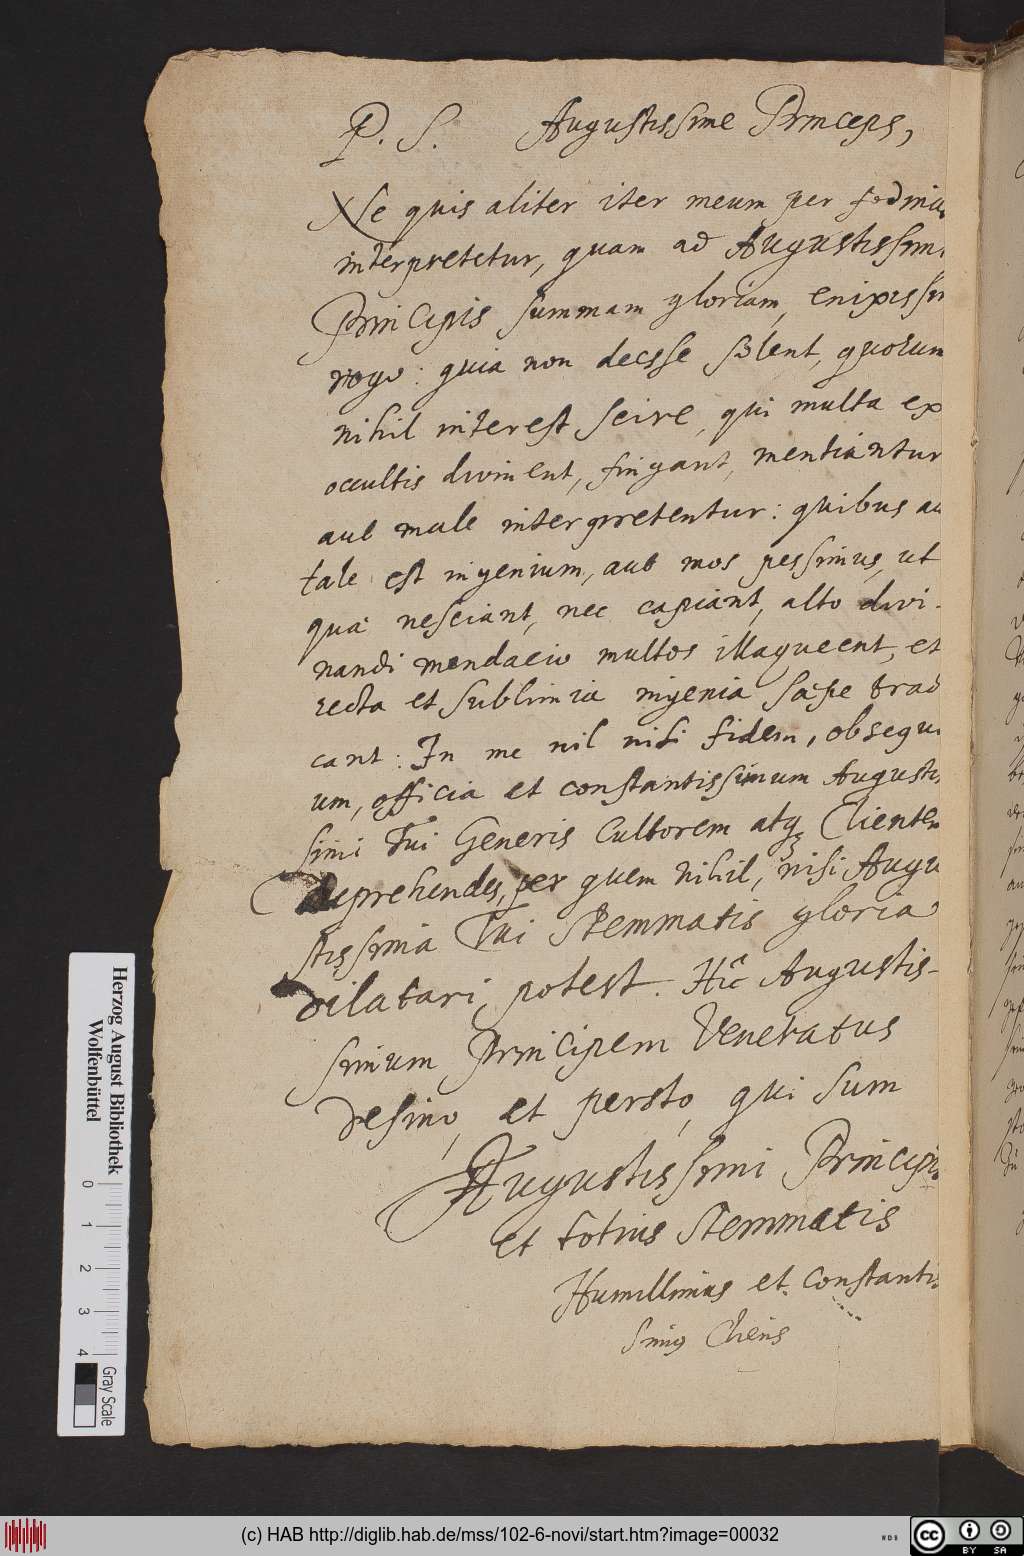 P. S. Augustissime Princeps,
Ne quis aliter iter meum per
interpretetur, quam ad Augustissimi
Principis summam gloriam, enixissi
rogo: quia non deesse solent, quorum
nihil interest scire, qui multa ex
occultis divinent, fingant, mentiantur
aut male interpretentur: quibus au
tale est ingenium, aut mos pessimus, ut
quae nesciant, nec capiant, alto divi-
nandi mendacio multos illaqueent, et
recta et sublimia ingenia saepe trad
cant: In me nil nisi fidem, obsequi
um, officia et constantissimum Augustis
simi Tui Generis Cultorem atq Clientem
deprehendes, per quem nihil, nisi Augu
stissima Tui Stemmatis gloria
dilatari potest. Hic Augustis-
simum Principem Veneratus
desino, et persto, qui sum
Augustissimi Principis
et totius Stemmatis
Humillimus et Constantis
simus Cliens
Herzog August Bibliothek
Wolfenbüttel
0 1 2 3 4
Gray Scale
(c) HAB http://diglib.hab.de/mss/102-6-novi/start.htm?image=00032
WDB
cc BY SA